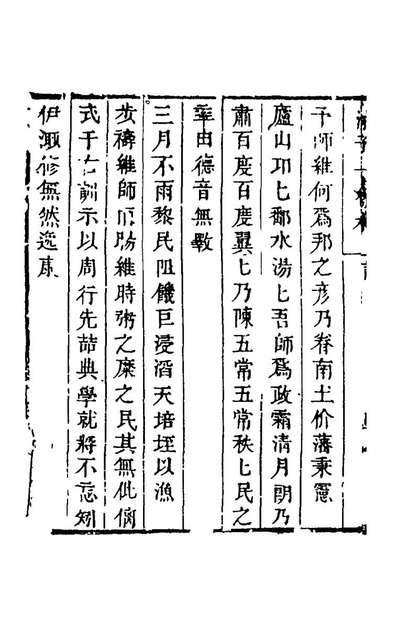 子師維何爲邦之彥乃眷南土价藩秉憲
廬山卬匕鄱水湯匕吾師爲政霜清月朗乃
肅百度百度翼匕乃陳五常五常秩匕民之
率由德音無斁
三月不雨黎民阻饑巨浸滔天培垤以漁
步禱維師 勝維時粥之糜之民其無仳
式于 訓示以周行先喆典學就將不忘
伊 修無然逸